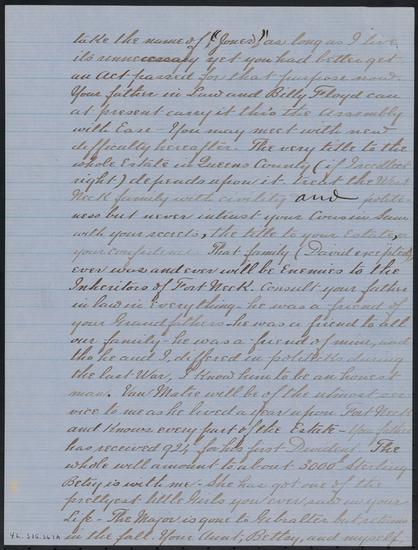 take the name of "Jones," as long as I live
its unnecessary yet you had better get
an Act passed for that purpose now.
Your father in Law and Billy Floyd can
at present carry it thro the Assembly
with Ease - You may meet with new
difficulty hereafter. The very title to the
whole Estate in Queens County (if I recollect
right) depends upon it. Treat the West
Neck family with civility and polite-
ness but never intrust your Cousin Sam
with your secrets, the title to your Estate,
your confidence. That family (David excepted)
ever was and ever will be Enemies to the
Inheritors of Fort Neck. Consult your father
in law in Everything - he was a friend of
your Grandfathers - he was a friend to all
our family - he was a friend of mine, and
tho he and I differed in politicks during
the last War, I know him to be an honest
man. Van Matre will be of the utmost ser-
vice to me as he lived a year upon Fort Neck
and Knows every part of the Estate - Your father
has received 924 for his first Dividend. The
whole will amount to about 3000 Sterling
Betsy is with me - She has got one of the
prettyest little Girls you ever saw in your
Life - The Major is gone to Gibralter but returns
in the fall. Your Aunt, Betsy, and myself